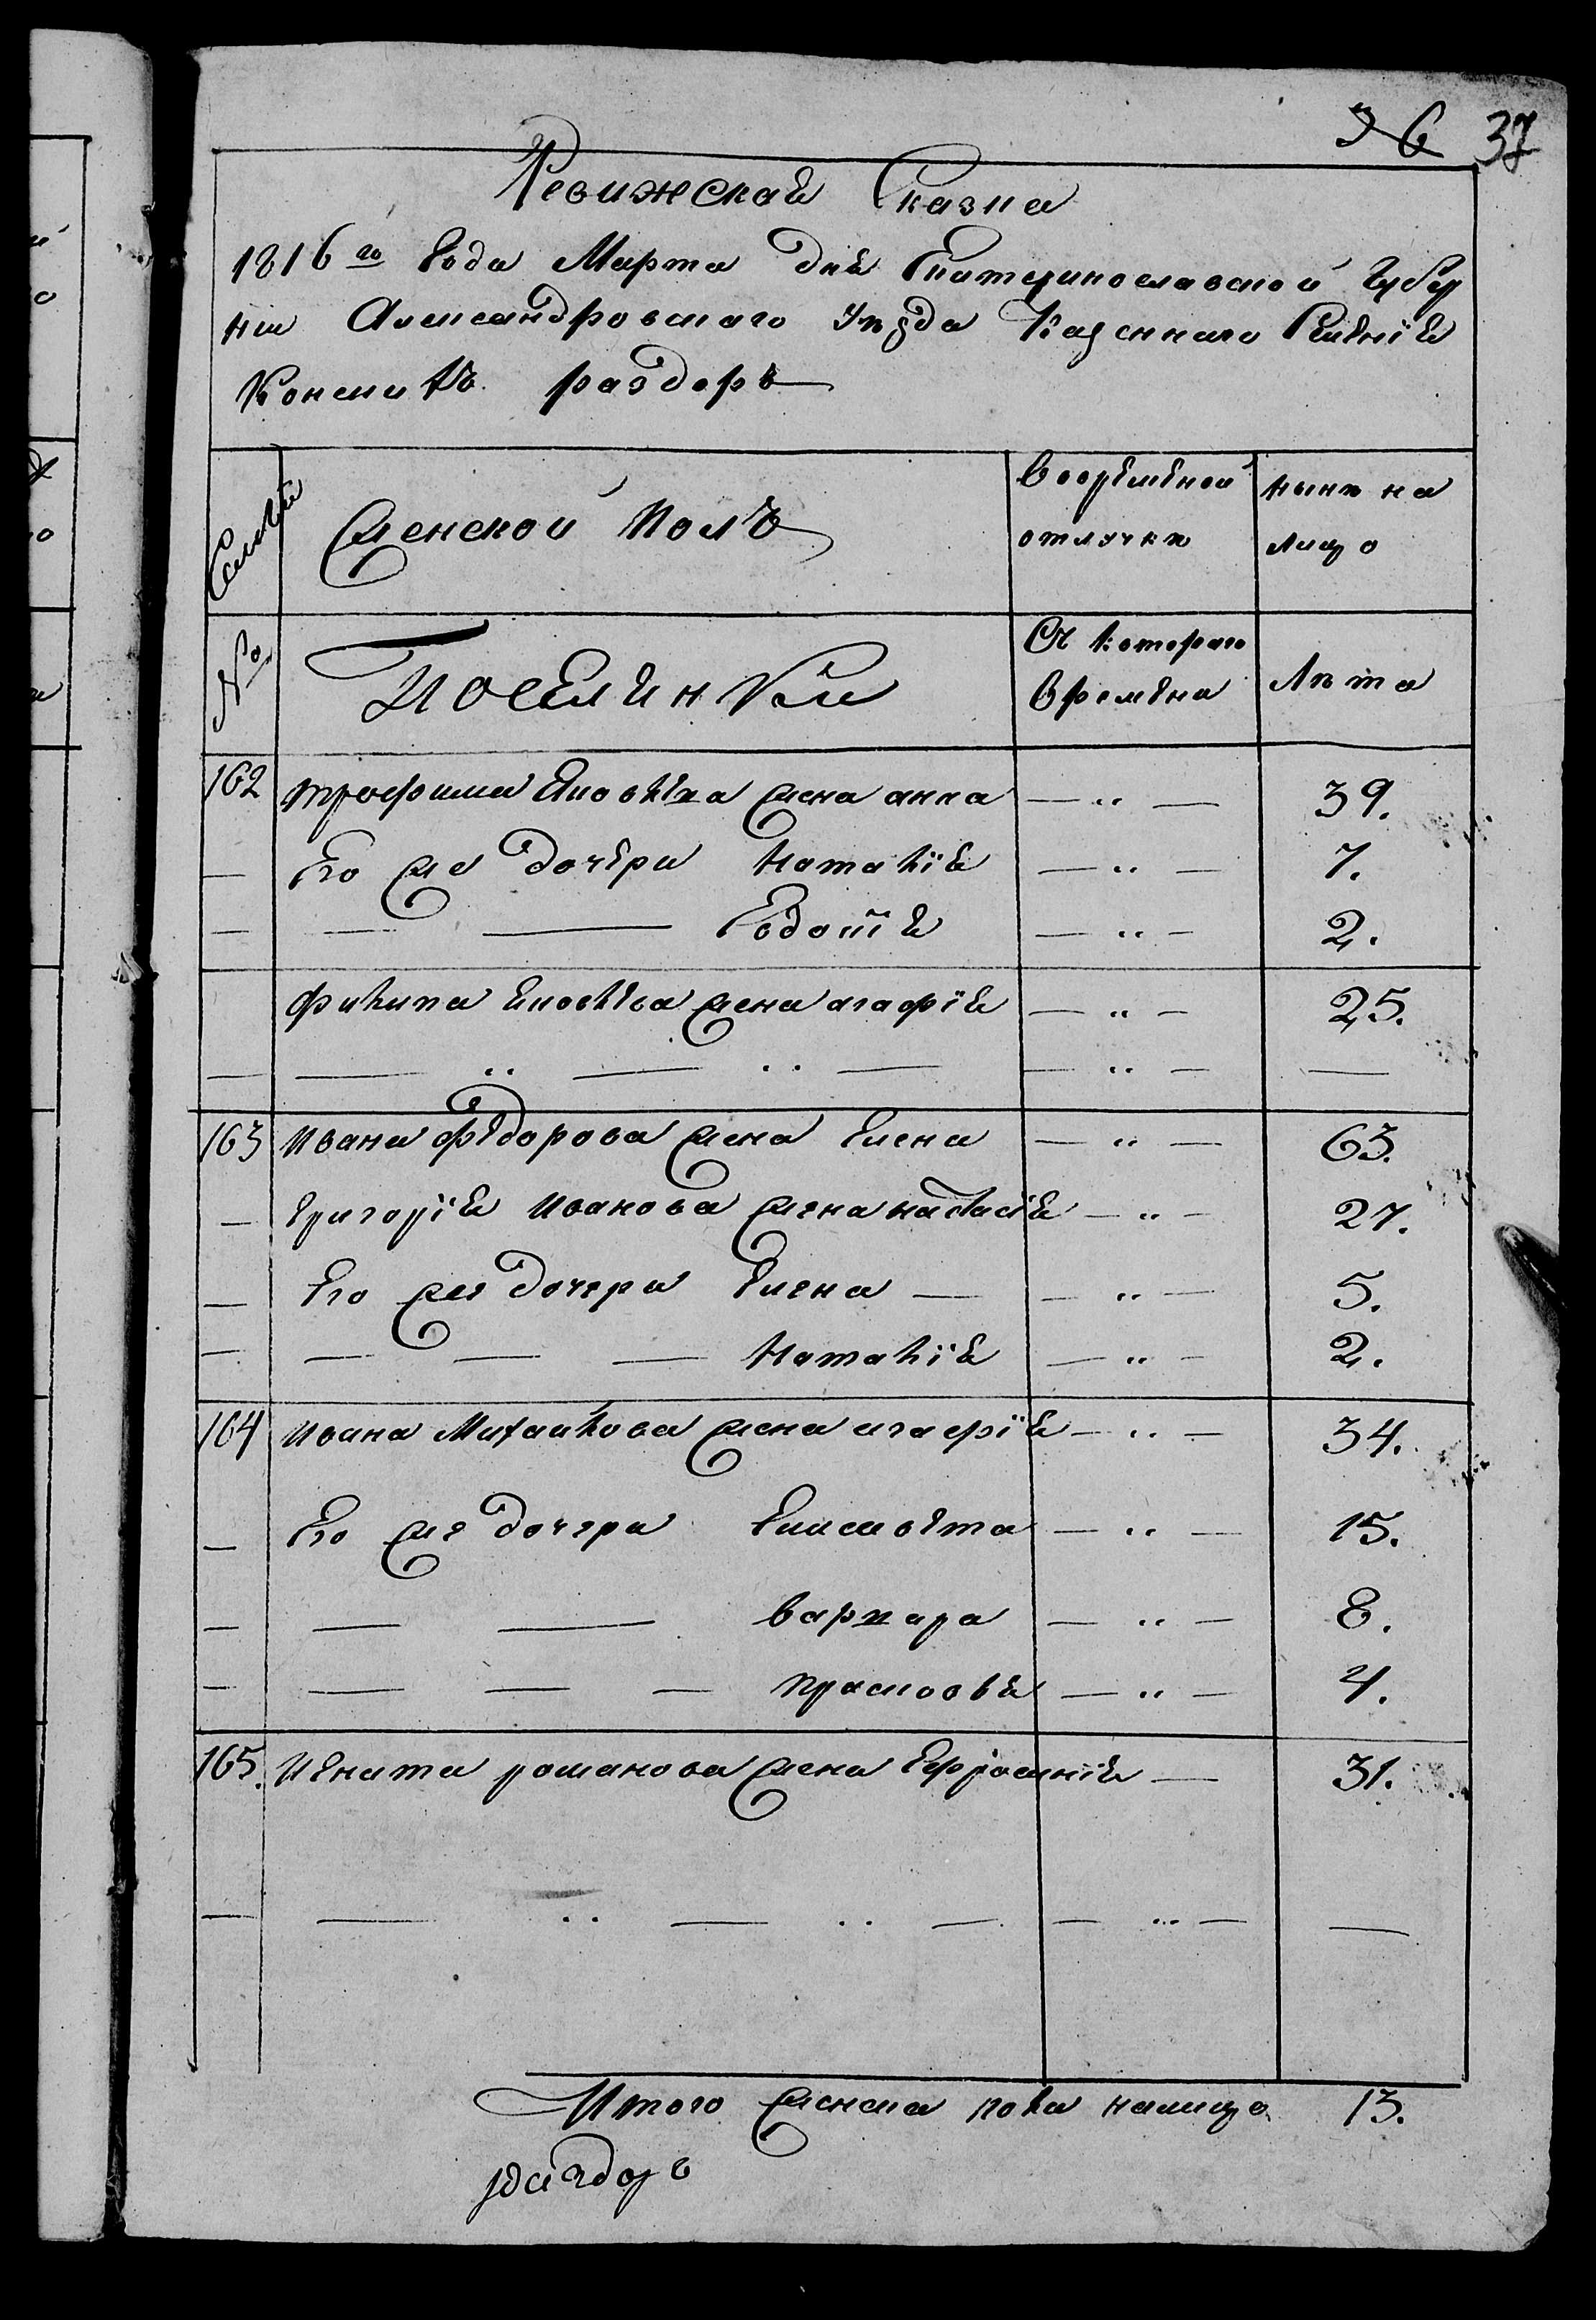 36 37
Ревижская Сказка
1816го Года Марта дня Екатеринославской Губер
нии Александровскаго Уезда Казеннаго Селения
Конских раздоръ
Семьи
Женской полъ
Вовремѣнной отлучкѣ
Нынѣ на лицо
№
Поселянки
Съ котораго времѣна
Лѣта
162 трофима Яковлѣва жена анна — „ — 39.
— Его же дочѣри Наталія — „ — 7.
— — — Евдотія — „ — 2.
филипа яковлѣва жена агафія — „ — 25.
— — „ — „ — — „ — —
163 Ивана фѣдорова жена Елена — „ — 63.
— Григорія Иванова жена настасія — „ — 27.
— Его же дочери Елена — — „ — 5.
— — — — Наталія — „ — 2.
164 Ивана Михайлова жена агафія — „ — 34.
— Его же дочери Елисавѣта — „ — 15.
— — — варвара — „ — 8.
— — — — прасковья — „ — 4.
165. Игната романова жена Ефросинія — 31.
— — „ — „ — — „ — —
Итого женска пола налицо 13.